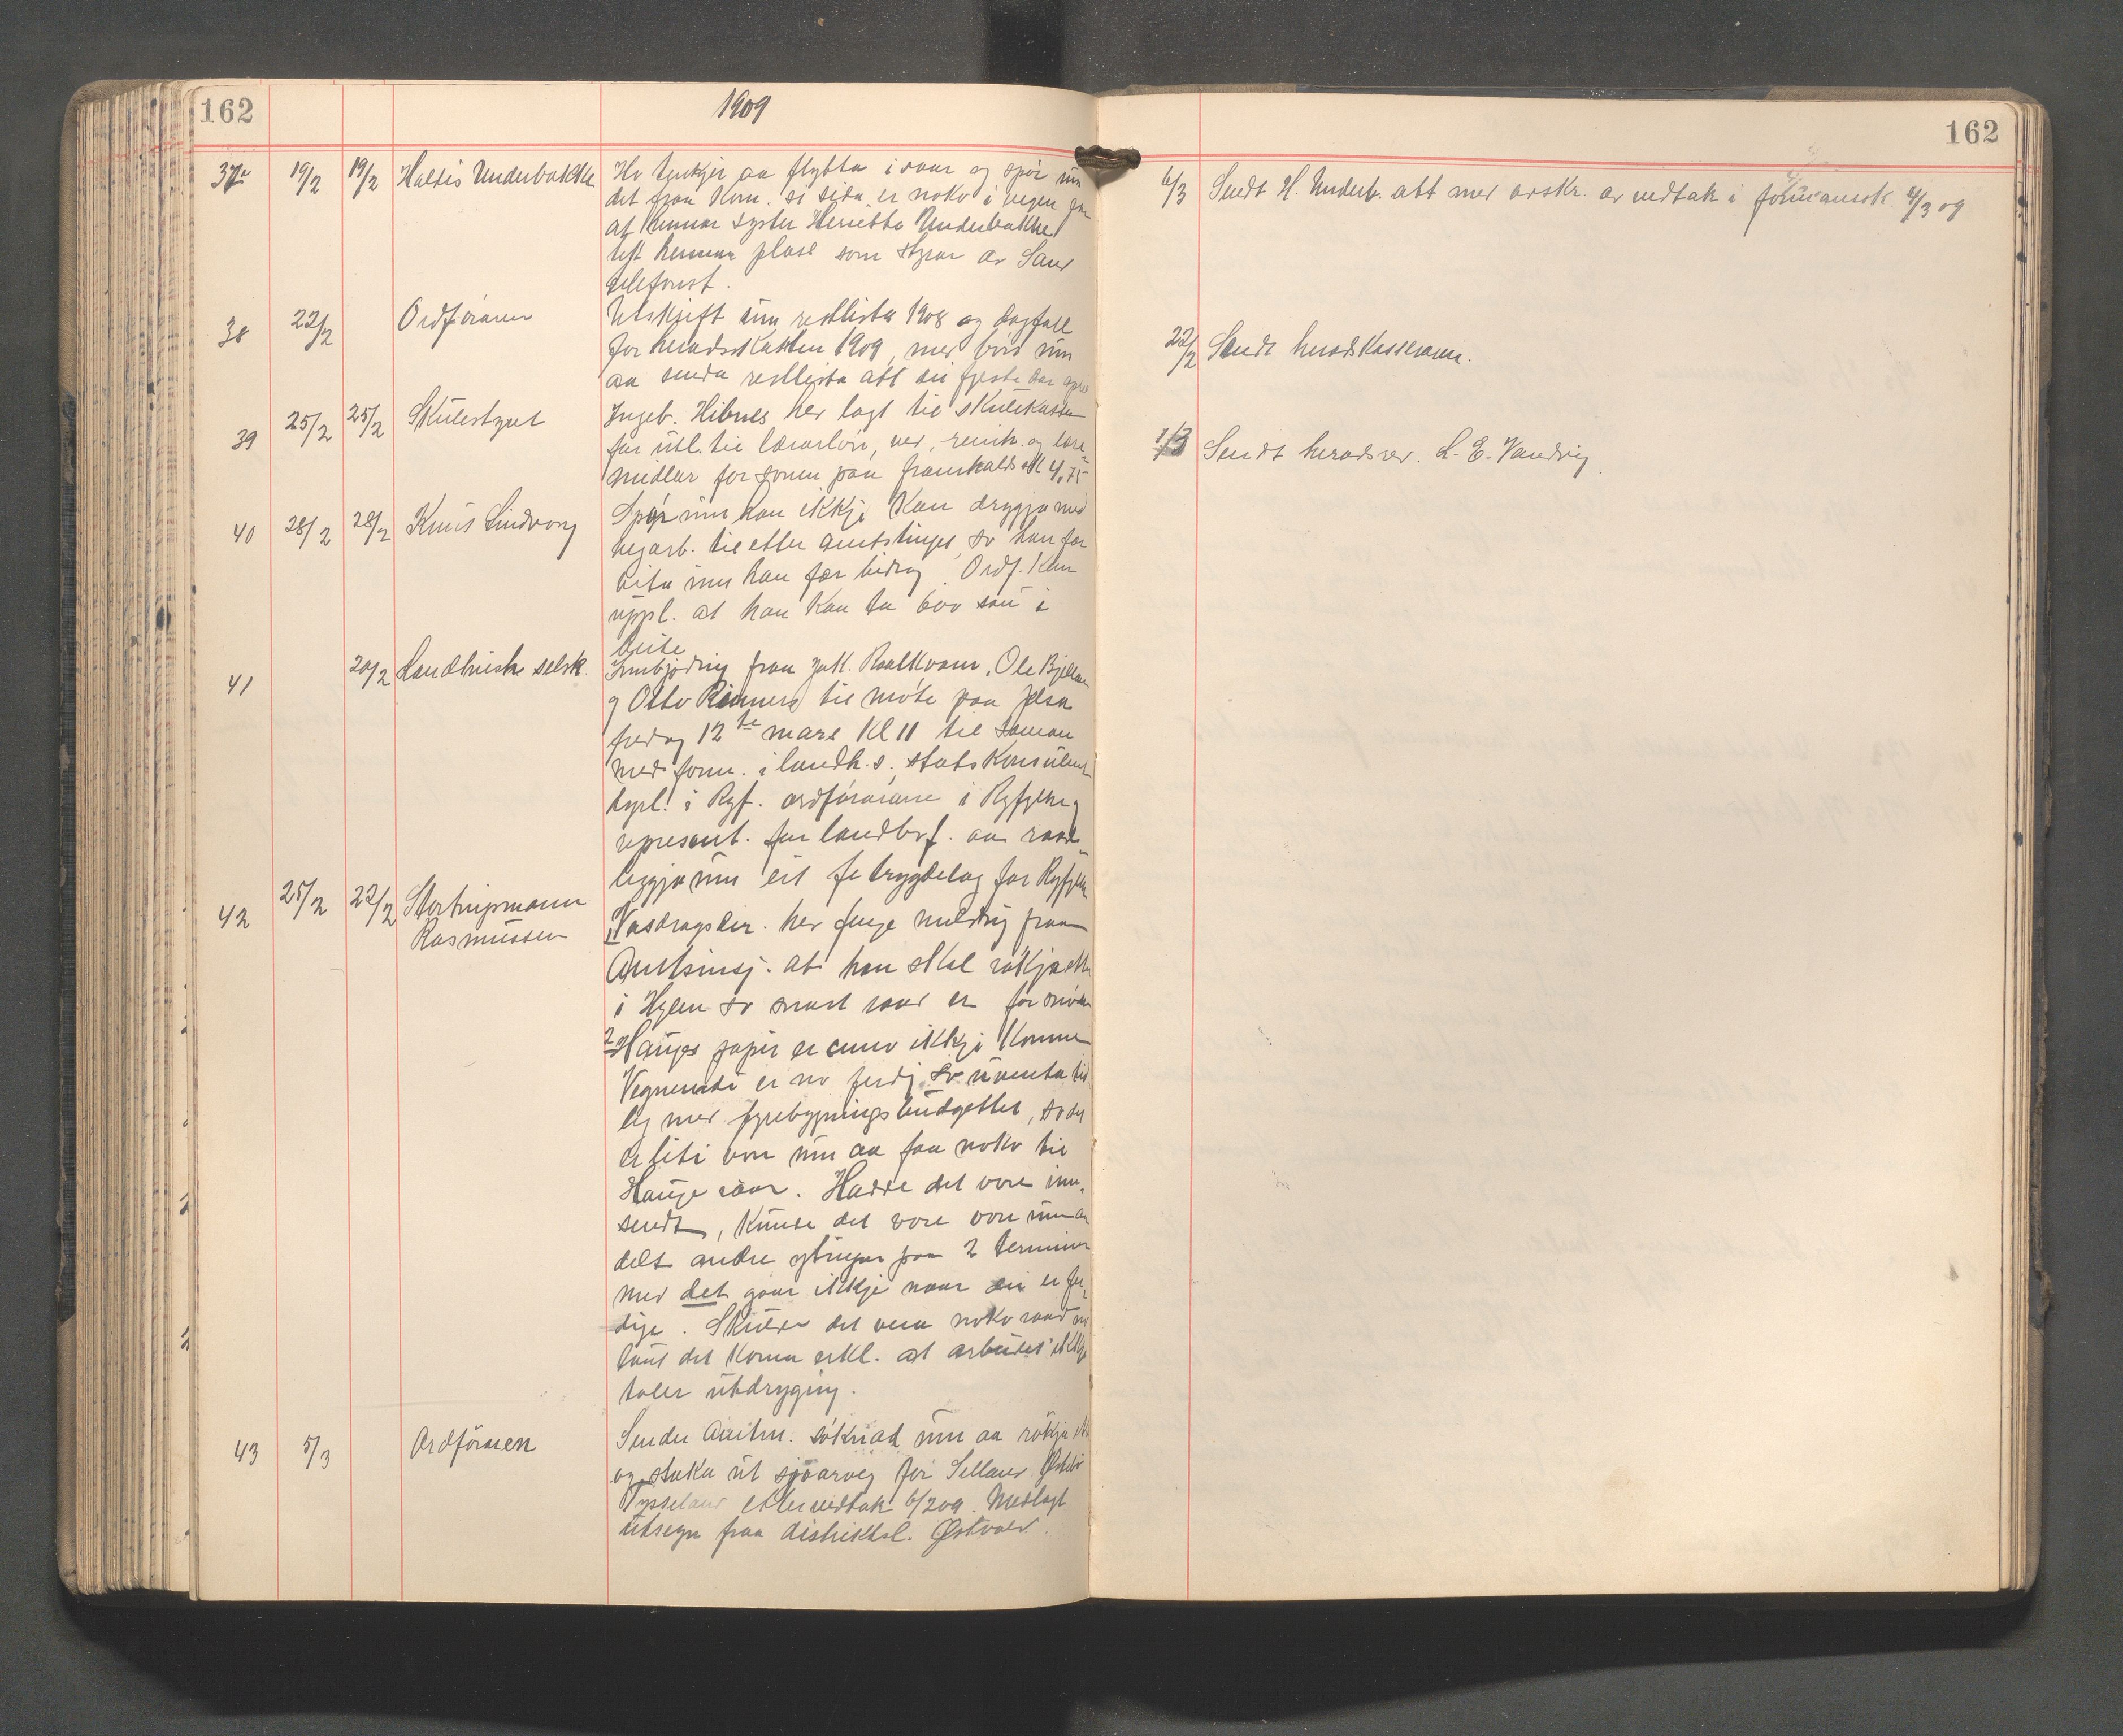 162
1909
37 19/2 19/2 Haldis Underbakke Ho tenkjer aa flytta i vaar og spör um
det fraa Kom. si sida er noko i vegen for
at hennar syster Henrietta Underbakke
tek hennar plass som styrar av Sand
telefonst.
38 22/2 Ordföraren Utskrift um restlista 1908 og dagfall
for heradsskatten 1909, med bod um
aa senda restlista att
39 25/2 25/2 Skulestyret Ingeb. Hibnes hev lagt til skulekassen
for utl. til lærarlön, ved, reinh. og lære-
midlar for sonen paa framhaldssk 4,75
40 28/2 28/2 Knut Lindvong Spör um han ikkje kan drygja med
vegarb. til etter amtstinget, so han fær
vita um han fær bidrag. Ordf. kan
uppl. at han kan ta 600 sau i
beite
41 20/2 Landhush. selsk. Innbjoding fraa Raalkvam, Ole Bjelland
og Otto Rinnes til möte paa Jelsa
fredag 12te mars Kl 11 til saman
med form. i landh.s. statskonsulent
i Ryf. ordförarane i Ryfylke og
represent. for landbrf. aa raad-
leggja um eit fetrygdelag for Ryfylke
42 25/2 22/2 Stortingsmann Rasmussen
Vasdragsdir. hev fenge melding fraa
Amtsinsj. at han skal rökja etter
i Hylen so snart vaar er for snöen
2 Hauges papir er enno ikkje komne
Vegnemdi er no ferdig so uventa tid-
leg med fyrebygningsbudgettet, so det
er liti von um aa faa noko til
Hauge i aar. Hadde det vore inn-
sendt, kunde det vore von um aa
delt andre ytingar paa 2 terminar
med det gaar ikkje naar dei er fer-
dige. Skulde det vera noko raad
laut det koma erkl. at arbeidet ikkje
toler utdryging.
43 5/3 Ordföraren Sender Amtm. söknad um aa rökja etter
og staka ut sjoarveg for Selland Östebö
Tysseland etter vedtak 6/2 09. Medlagt
utsegn fraa distriktsl. Östvold.
162
6/3 Sendt H. Underb. att med avskr. av vedtak i formannsk. 4/3 09
22/2 Sendt heradskasseraren.
1/3 Sendt heradsrev. L. E. Vandvig.